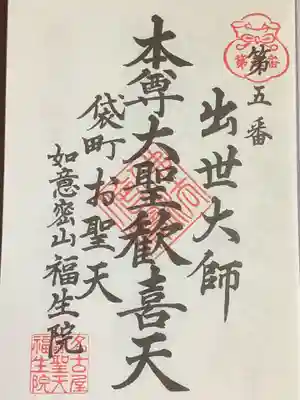 第五番
出世大師
本尊大聖歓喜天
袋町お聖天
如意密山福生院
名古屋
大聖天
福生院